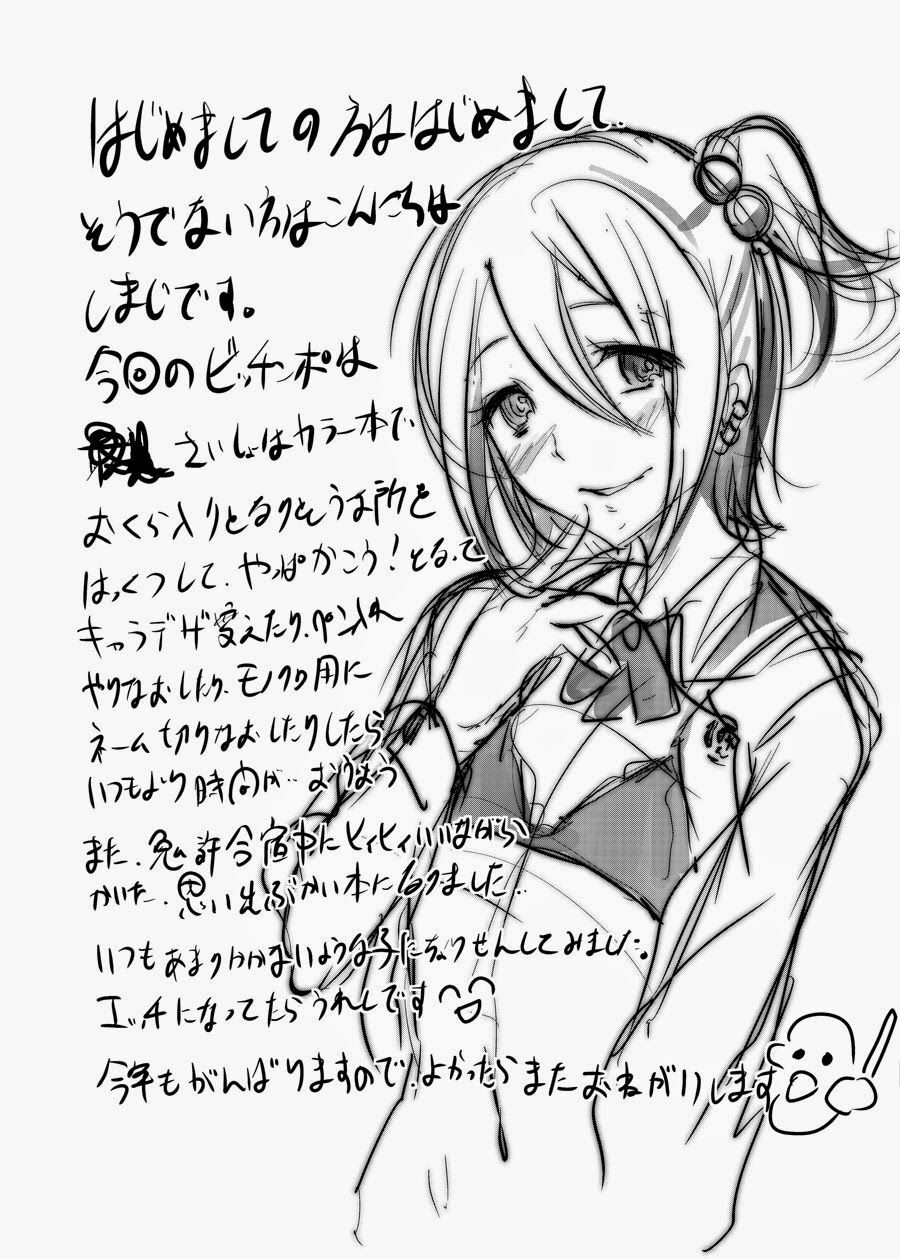 はじめましての方ははじめまして。
そうでない方はこんにちは
しまじです。
今回のビッチンポは
さいしょはカラー本で
おくら入りとなりそうな所を
はっくつして、やっぱかこう!となって
キャラデザ変えたり、ペン入れ
やりなおしたり、モノクロ用に
ネーム切りなおしたりしたら
いつもより時間が…
また、免許合宿中にヒィヒィいいながら
かいた、思い出ぶかい本になりました。
いつもあまりかかないような子にちょうせんしてみました。
エッチになってたらうれしいです
今年もがんばりますので、よかったらまたおねがいします